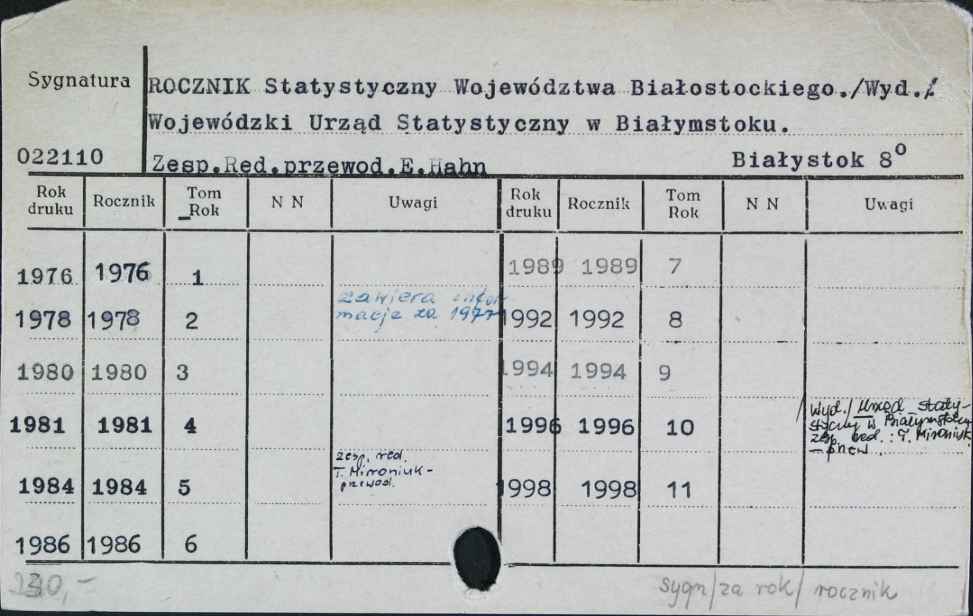 Sygnatura ROCZNIK Statystyczny Województwa Białostockiego./Wyd./
Wojewódzki Urząd Statystyczny w Białymstoku.
022110 Zesp.Red.przewod.E.Hahn Białystok 8°
Rok druku Rocznik Tom Rok N N Uwagi Rok druku Rocznik Tom Rok N N Uwagi
1976 1976 1 1989 1989 7
zawiera infor
macje za 1977
1978 1978 2 1992 1992 8
1980 1980 3 1994 1994 9
1981 1981 4 1996 1996 10
Wyd./ Urząd staty-
styczny w Białymstoku
zesp. red. : T. Mironiuk
- przew.
zesp. red.
T. Mironiuk-
przewod.
1984 1984 5 1998 1998 11
1986 1986 6
sygn/za rok/ rocznik